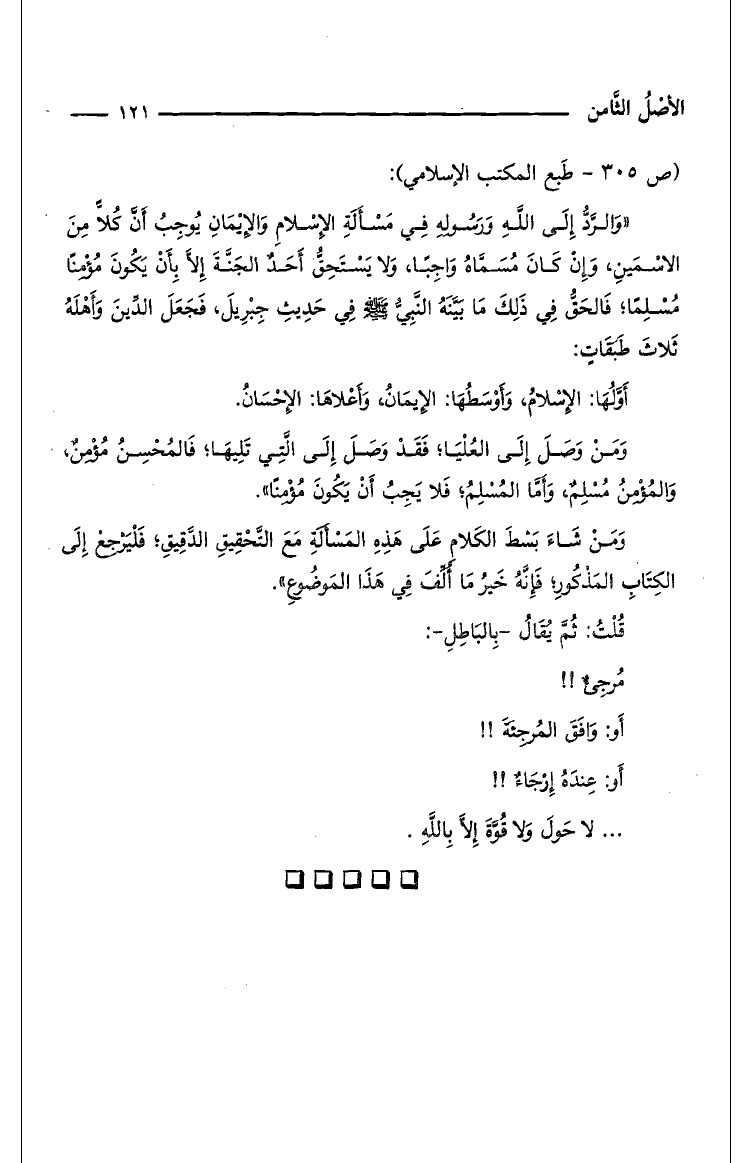 الأصْلُ الثَّامن ١٢١
(ص ٣٠٥ - طَبع المكتب الإسلامي):
«وَالـرَّدُّ إِلَـى اللَّـهِ وَرَسُـولِهِ فِـي مَسْـأَلَةِ الإِسْـلامِ وَالإِيْمَانِ يُوجِبُ أَنَّ كُلاًّ مِنَ
الاسْـمَينِ، وَإِنْ كَـانَ مُسَـمَّاهُ وَاجِبًـا، وَلا يَسْـتَحِقُّ أَحَـدٌ الجَنَّـةَ إِلاَّ بِأَنْ يَكُونَ مُؤْمِنًا
مُسْـلِمًا؛ فَالحَقُّ فِي ذَلِكَ مَا بَيَّنَهُ النَّبِيُّ ﷺ فِي حَدِيثِ جِبْرِيلَ، فَجَعَلَ الدِّينَ وَأَهْلَهُ
ثَلاثَ طَبَقَاتٍ:
أَوَّلُهَا: الإِسْلامُ، وَأَوْسَطُهَا: الإِيمَانُ، وَأَعْلاهَا: الإِحْسَانُ.
وَمَـنْ وَصَـلَ إِلَـى العُلْيَـا؛ فَقَـدْ وَصَـلَ إِلَـى الَّتِـي تَلِيهَـا؛ فَالمُحْسِـنُ مُؤْمِنٌ،
وَالمُؤْمِنُ مُسْلِمٌ، وَأَمَّا المُسْلِمُ؛ فَلا يَجِبُ أَنْ يَكُونَ مُؤْمِنًا».
وَمَـنْ شَـاءَ بَسْطَ الكَلامِ عَلَى هَذِهِ المَسْأَلَةِ مَعَ التَّحْقِيقِ الدَّقِيقِ؛ فَلْيَرْجِعْ إِلَى
الكِتَابِ المَذْكُورِ؛ فَإِنَّهُ خَيرُ مَا أُلِّفَ فِي هَذَا المَوضُوعِ».
قُلْتُ: ثُمَّ يُقَالُ -بِالبَاطِلِ-:
مُرجِئٌ !!
أَو: وَافَقَ المُرجِئَةَ !!
أَو: عِندَهُ إِرْجَاءٌ !!
... لا حَولَ وَلا قُوَّةَ إِلاَّ بِاللَّهِ .